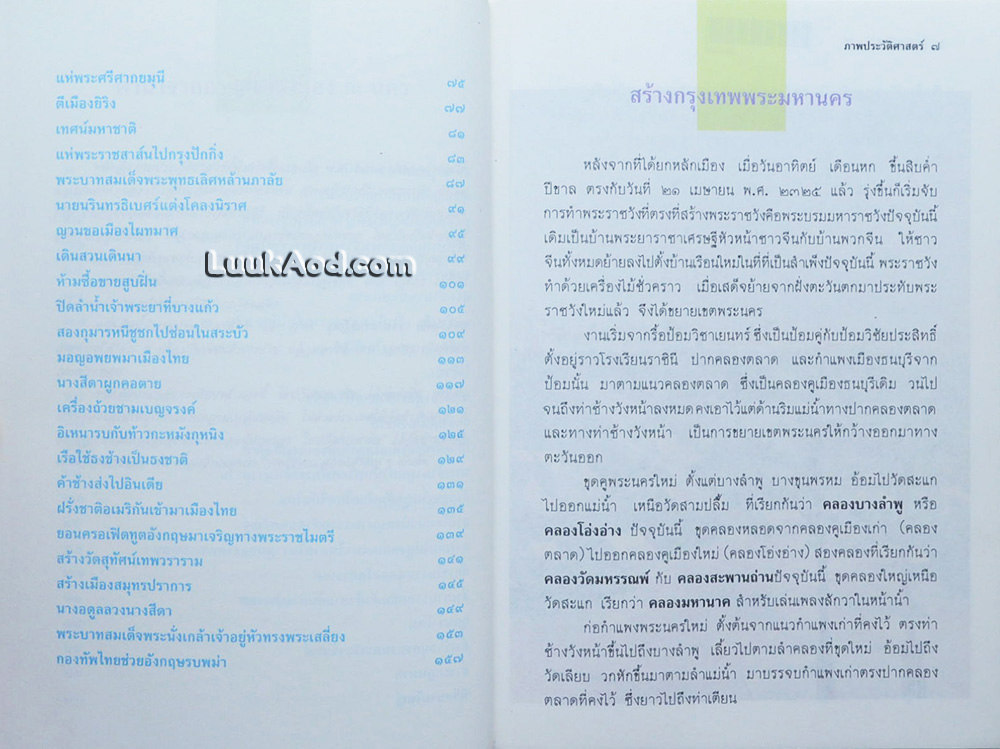 แห่พระศรีศากยมุนี ๗๕
ตีเมืองยิริง ๗๗
เทศน์มหาชาติ ๘๑
แห่พระราชสาส์นไปกรุงปักกิ่ง ๘๓
พระบาทสมเด็จพระพุทธเลิศหล้านภาลัย ๘๗
นายนรินทรธิเบศร์แต่งโคลงนิราศ ๙๑
ญวนขอเมืองไผทมาศ ๙๕
เดินสวนเดินนา ๙๙
ห้ามซื้อขายสูบฝิ่น ๑๐๑
ปิดลำน้ำเจ้าพระยาที่บางแก้ว ๑๐๕
สองกุมารหนีชูชกไปซ่อนในสระบัว ๑๐๙
มอญอพยพมาเมืองไทย ๑๑๓
นางสีดาผูกคอตาย ๑๑๗
เครื่องถ้วยชามเบญจรงค์ ๑๒๑
อิเหนารบกับท้าวกะหมังกุหนิง ๑๒๕
เรือใช้ธงช้างเป็นธงชาติ ๑๒๙
ค้าช้างส่งไปอินเดีย ๑๓๑
ฝรั่งชาติอเมริกันเข้ามาเมืองไทย ๑๓๕
ยอนครอเฟิดทูตอังกฤษมาเจริญทางพระราชไมตรี ๑๓๙
สร้างวัดสุทัศน์เทพวราราม ๑๔๑
สร้างเมืองสมุทรปราการ ๑๔๕
นางอดูลลวงนางสีดา ๑๔๙
พระบาทสมเด็จพระนั่งเกล้าเจ้าอยู่หัวทรงพระเสลี่ยง ๑๕๓
กองทัพไทยช่วยอังกฤษรบพม่า ๑๕๗
LuukAod.com
ภาพประวัติศาสตร์ ๗
สร้างกรุงเทพพระมหานคร
หลังจากที่ได้ยกหลักเมือง เมื่อวันอาทิตย์ เดือนหก ขึ้นสิบค่ำ
ปีขาล ตรงกับวันที่ ๒๑ เมษายน พ.ศ. ๒๓๒๕ แล้ว รุ่งขึ้นก็เริ่มจับ
การทำพระราชวังที่ตรงที่สร้างพระราชวังคือพระบรมมหาราชวังปัจจุบันนี้
เดิมเป็นบ้านพระยาราชาเศรษฐีหัวหน้าชาวจีนกับบ้านพวกจีน ให้ชาว
จีนทั้งหมดย้ายลงไปตั้งบ้านเรือนใหม่ในที่ที่เป็นสำเพ็งปัจจุบันนี้ พระราชวัง
ทำด้วยเครื่องไม้ชั่วคราว เมื่อเสด็จย้ายจากฝั่งตะวันตกมาประทับพระ
ราชวังใหม่แล้ว จึงได้ขยายเขตพระนคร
งานเริ่มจากรื้อป้อมวิชาเยนทร์ ซึ่งเป็นป้อมคู่กับป้อมวิชัยประสิทธิ์
ตั้งอยู่ราวโรงเรียนราชินี ปากคลองตลาด และกำแพงเมืองธนบุรีจาก
ป้อมนั้น มาตามแนวคลองตลาด ซึ่งเป็นคลองคูเมืองธนบุรีเดิม วนไป
จนถึงท่าช้างวังหน้าลงหมด คงเอาไว้แต่ด้านริมแม่น้ำทางปากคลองตลาด
และทางท่าช้างวังหน้า เป็นการขยายเขตพระนครให้กว้างออกมาทาง
ตะวันออก
ขุดคูพระนครใหม่ ตั้งแต่บางลำพู บางขุนพรหม อ้อมไปวัดสะแก
ไปออกแม่น้ำ เหนือวัดสามปลื้ม ที่เรียกกันว่า คลองบางลำพู หรือ
คลองโอ่งอ่าง ปัจจุบันนี้ ขุดคลองหลอดจากคลองคูเมืองเก่า (คลอง
ตลาด) ไปออกคลองคูเมืองใหม่ (คลองโอ่งอ่าง) สองคลองที่เรียกกันว่า
คลองวัดมหรรณพ์ กับ คลองสะพานถ่านปัจจุบันนี้ ขุดคลองใหญ่เหนือ
วัดสะแก เรียกว่า คลองมหานาค สำหรับเล่นเพลงสักวาในหน้าน้ำ
ก่อกำแพงพระนครใหม่ ตั้งต้นจากแนวกำแพงเก่าที่คงไว้ ตรงท่า
ช้างวังหน้าขึ้นไปถึงบางลำพู เลี้ยวไปตามลำคลองที่ขุดใหม่ อ้อมไปถึง
วัดเลียบ วกหักขึ้นมาตามลำแม่น้ำ มาบรรจบกำแพงเก่าตรงปากคลอง
ตลาดที่คงไว้ ซึ่งยาวไปถึงท่าเตียน